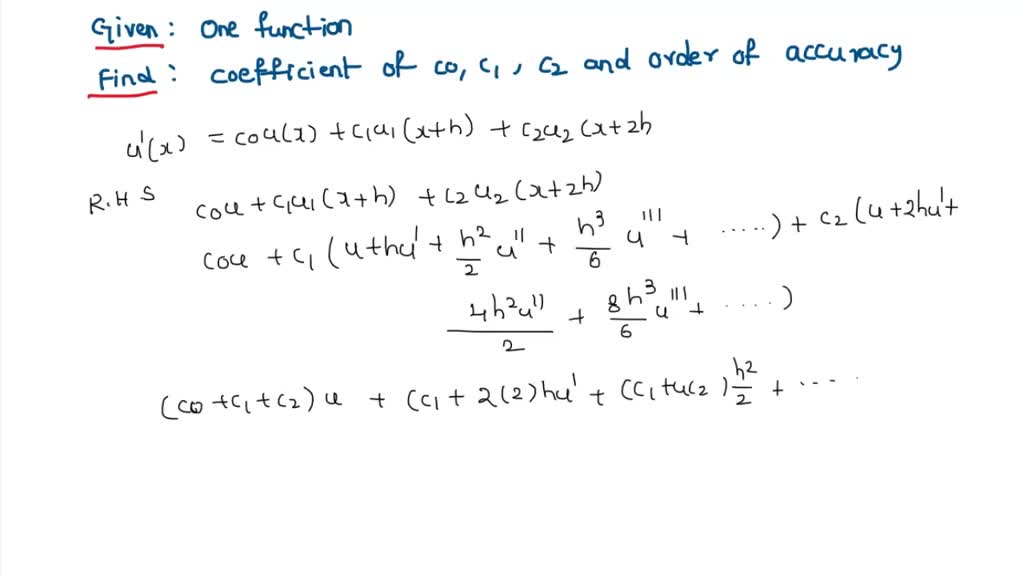 Given: One function
Find: coefficient of c0, c1, c2 and order of accuracy
u'(x) = c0u(x) + c1u1(x+h) + c2u2(x+2h
R.H S c0u + c1u1(x+h) + c2u2(x+2h)
c0u + c1(u+hu' + h²/2 u'' + h³/6 u''' + .....) + c2(u+2hu'+
4h²u''/2 + 8h³/6 u''' + ....)
(c0+c1+c2)u + (c1+2(2)hu' + (c1+4c2)h²/2 + ....